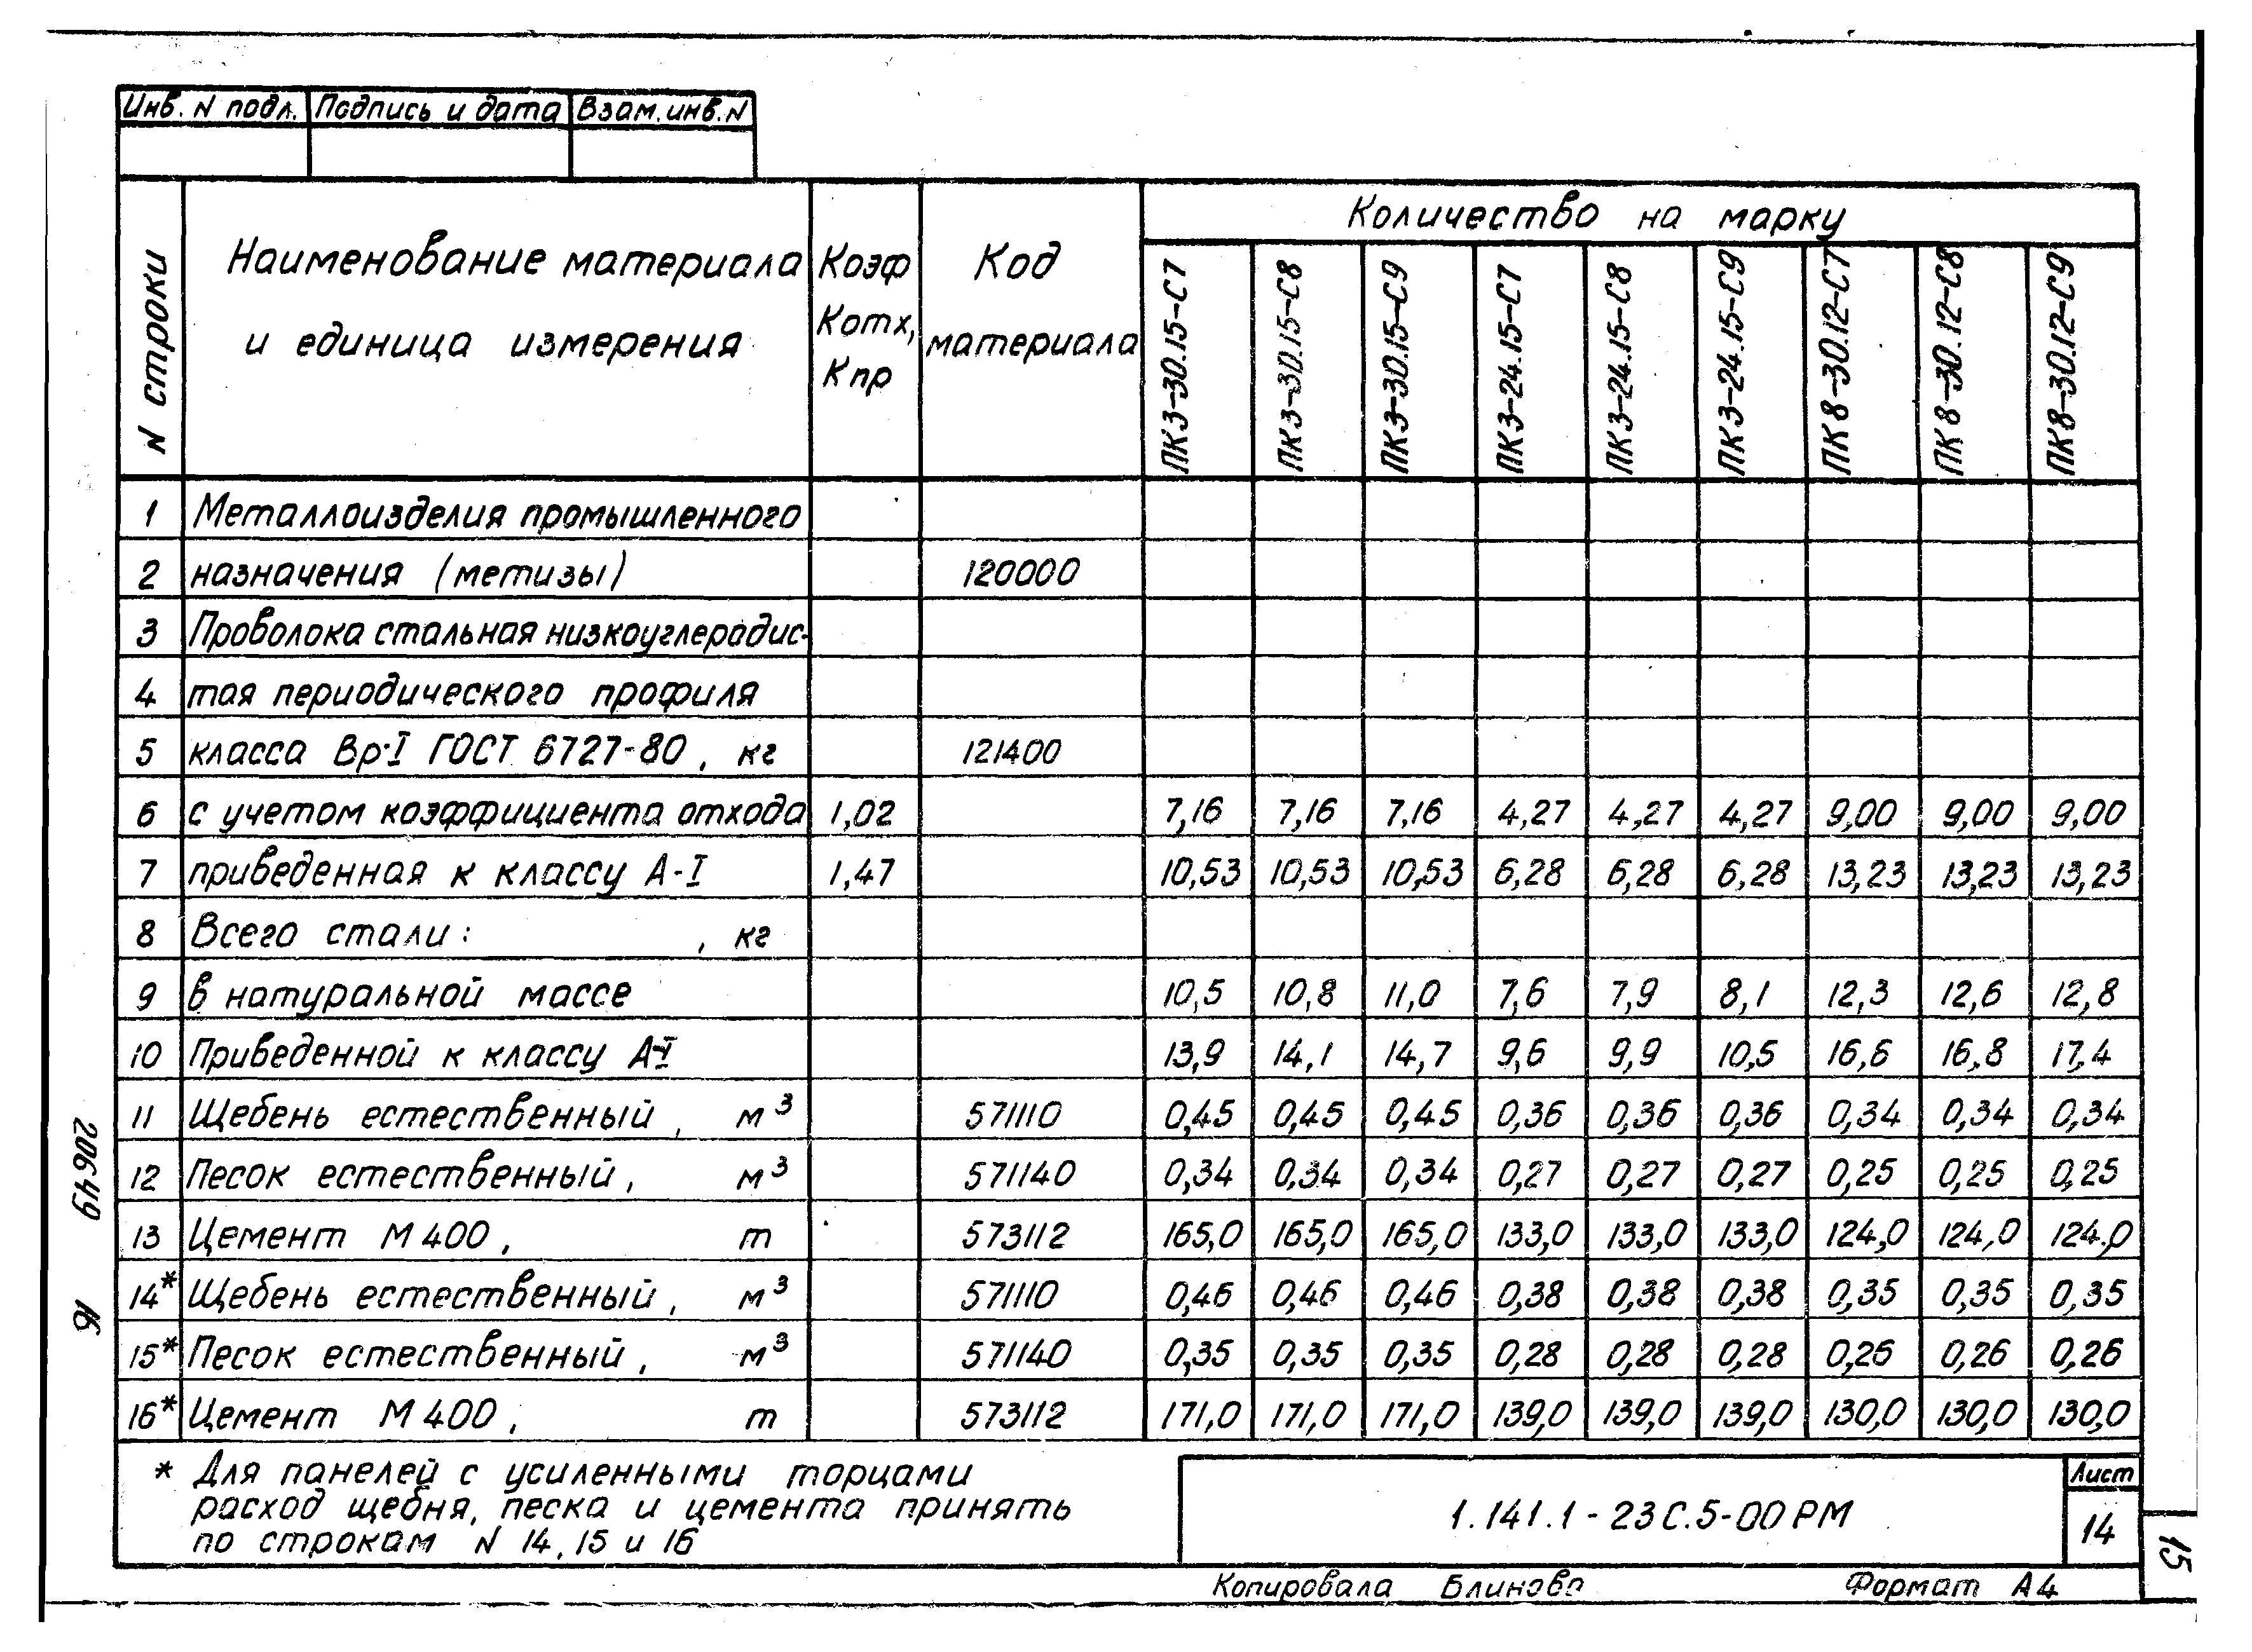 Инв. N подл. Подпись и дата Взам. инв. N
N строки Наименование материала и единица измерения Коэф Котх, Кпр Код материала Количество на марку
ПК3-30.15-С7 ПК3-30.15-С8 ПК3-30.15-С9 ПК3-24.15-С7 ПК3-24.15-С8 ПК3-24.15-С9 ПК8-30.12-С7 ПК8-30.12-С8 ПК8-30.12-С9
1 Металлоизделия промышленного
2 назначения (метизы) 120000
3 Проволока стальная низкоуглеродис-
4 тая периодического профиля
5 класса Вр-I ГОСТ 6727-80, кг 121400
6 с учетом коэффициента отхода 1,02 7,16 7,16 7,16 4,27 4,27 4,27 9,00 9,00 9,00
7 приведенная к классу А-I 1,47 10,53 10,53 10,53 6,28 6,28 6,28 13,23 13,23 13,23
8 Всего стали: , кг
9 в натуральной массе 10,5 10,8 11,0 7,6 7,9 8,1 12,3 12,6 12,8
10 Приведенной к классу А-I 13,9 14,1 14,7 9,6 9,9 10,5 16,6 16,8 17,4
11 Щебень естественный, м³ 571110 0,45 0,45 0,45 0,36 0,36 0,36 0,34 0,34 0,34
12 Песок естественный, м³ 571140 0,34 0,34 0,34 0,27 0,27 0,27 0,25 0,25 0,25
13 Цемент М400, т 573112 165,0 165,0 165,0 133,0 133,0 133,0 124,0 124,0 124,0
14* Щебень естественный, м³ 571110 0,46 0,46 0,46 0,38 0,38 0,38 0,35 0,35 0,35
15* Песок естественный, м³ 571140 0,35 0,35 0,35 0,28 0,28 0,28 0,26 0,26 0,26
16* Цемент М400, т 573112 171,0 171,0 171,0 139,0 139,0 139,0 130,0 130,0 130,0
* Для панелей с усиленными торцами
расход щебня, песка и цемента принять
по строкам N 14, 15 и 16
1.141.1-23С.5-00РМ
Лист
14
Копировала Блинова Формат А4
20649 16
15